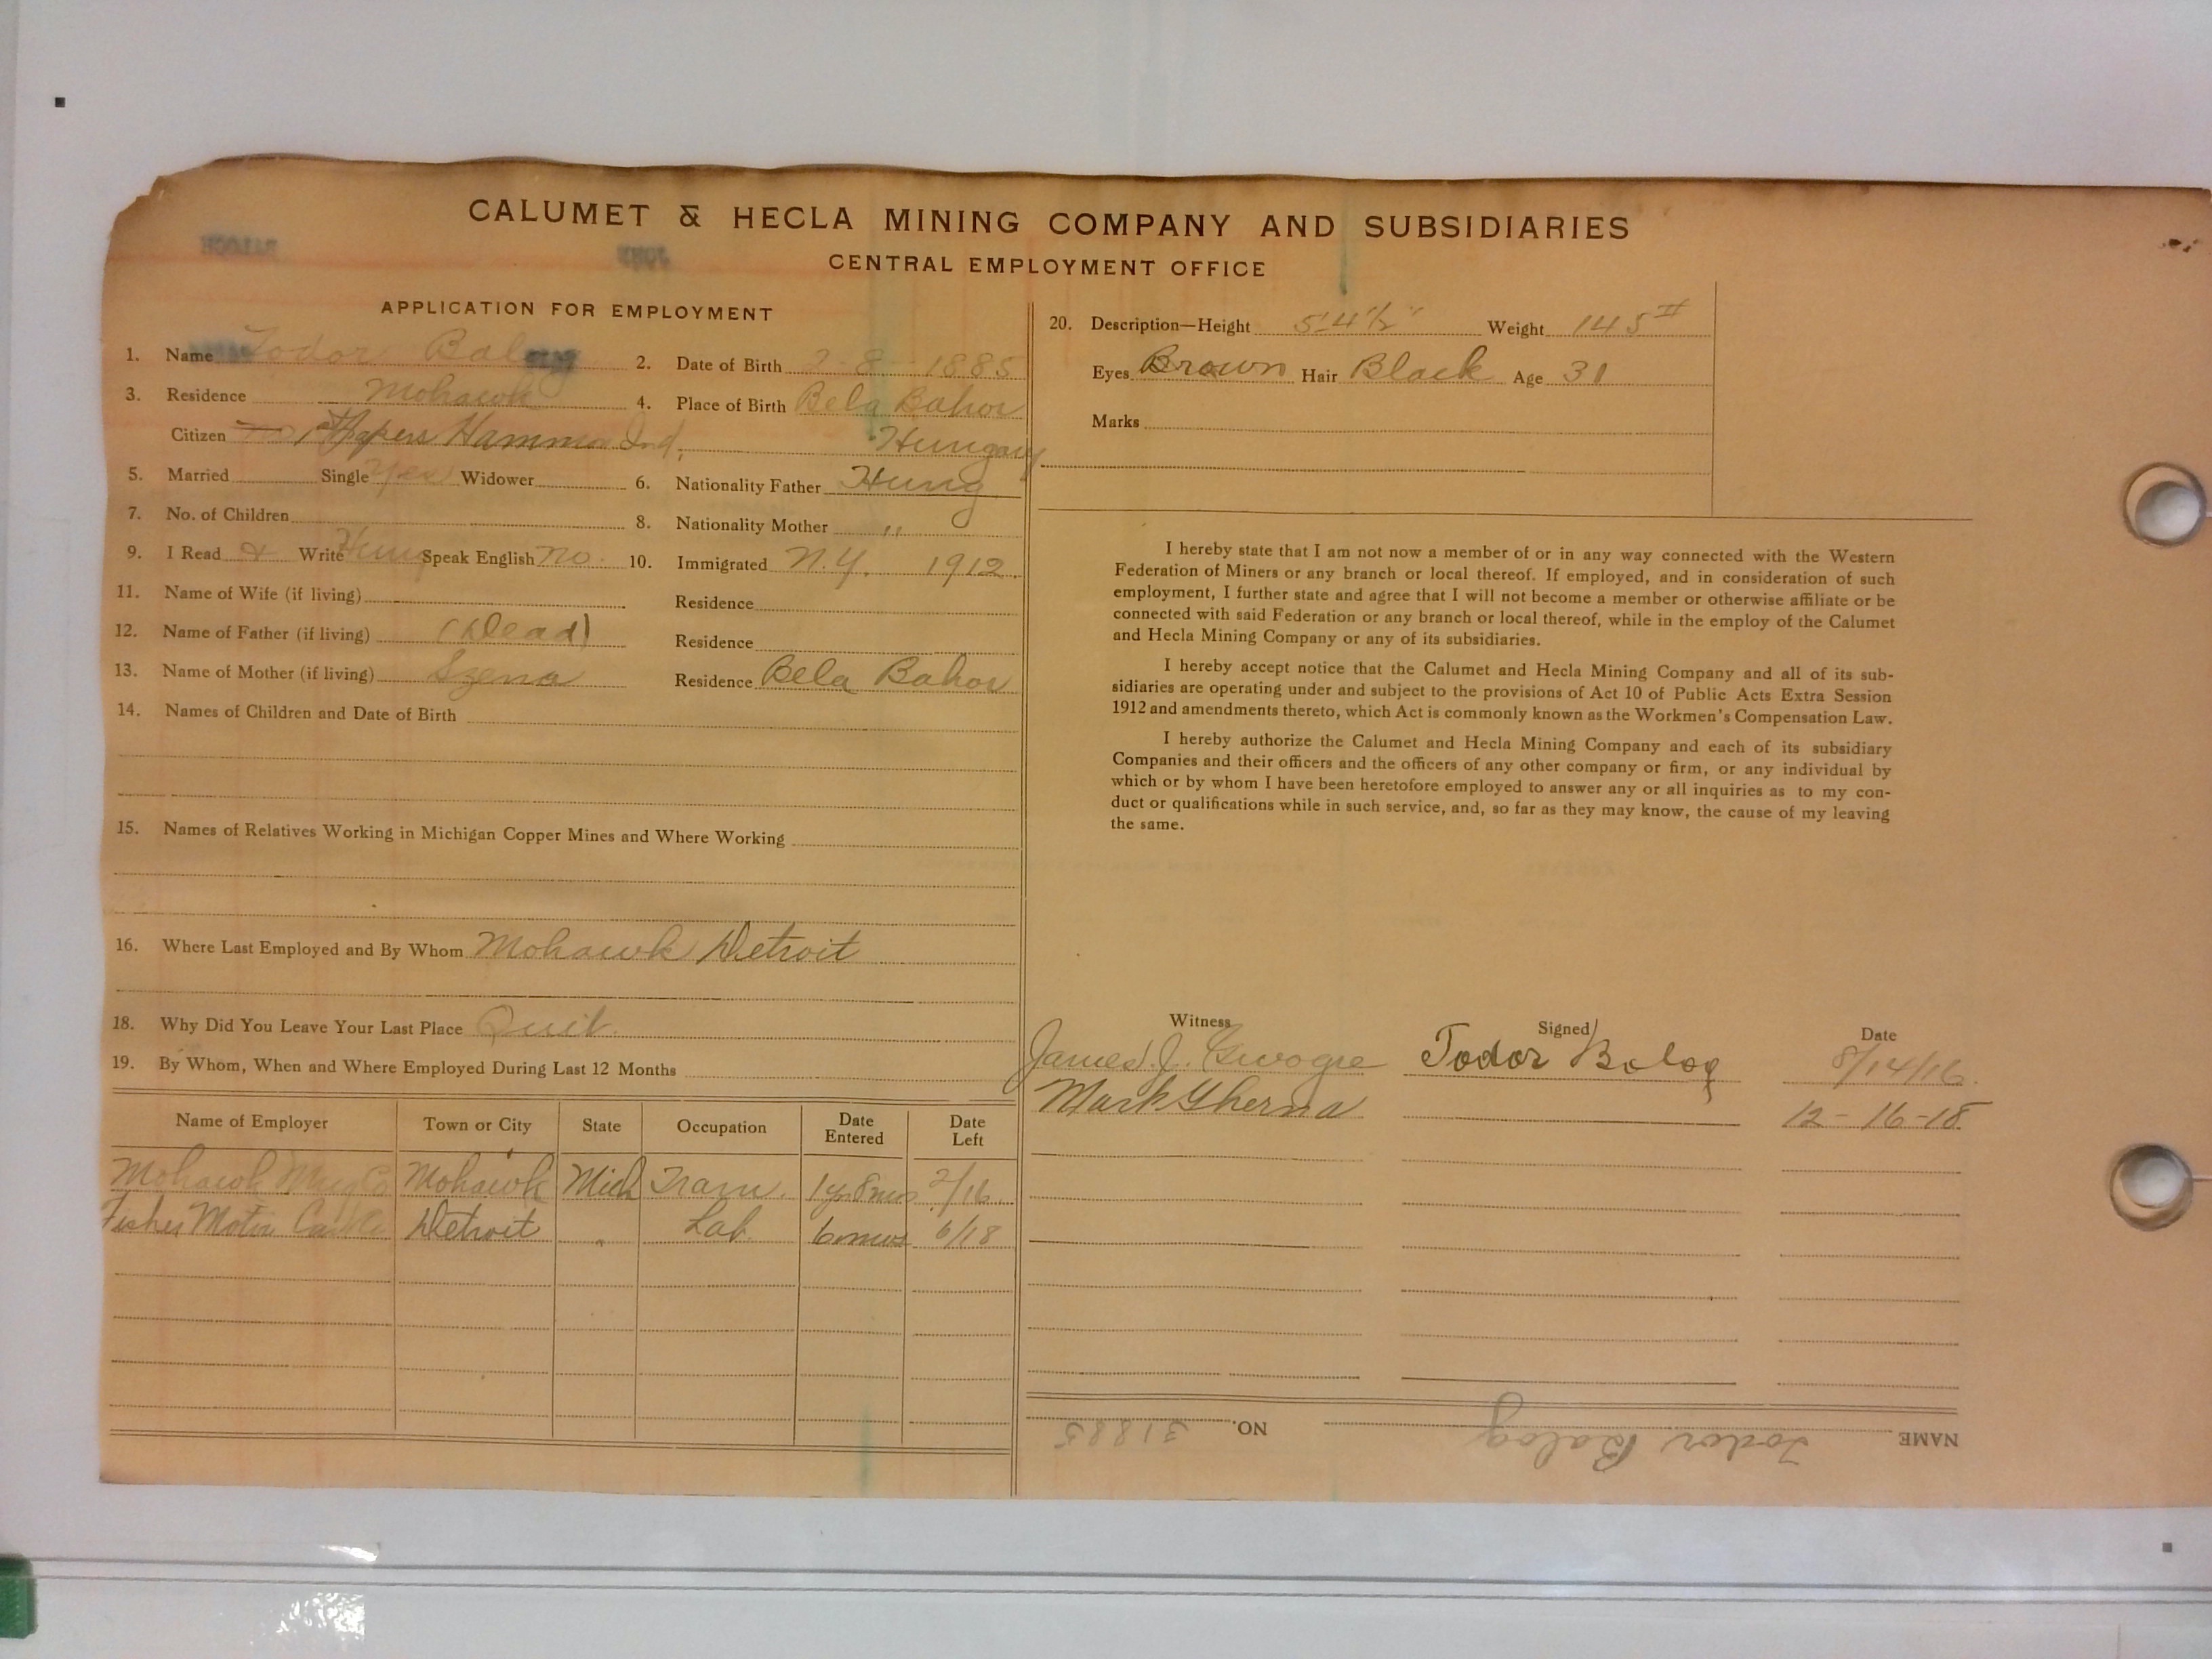 CALUMET & HECLA MINING COMPANY AND SUBSIDIARIES
CENTRAL EMPLOYMENT OFFICE
APPLICATION FOR EMPLOYMENT
1. Name Todor Balog 2. Date of Birth 8 1885
3. Residence Mohawk 4. Place of Birth Bela Bahor
Citizen 1st Papers Hammon Ind. Hungary
5. Married Single Yes Widower 6. Nationality Father Hung
7. No. of Children 8. Nationality Mother "
9. I Read & Write Hung Speak English no. 10. Immigrated N.Y. 1912.
11. Name of Wife (if living) Residence
12. Name of Father (if living) (Dead) Residence
13. Name of Mother (if living) Szena Residence Bela Bahor
14. Names of Children and Date of Birth
15. Names of Relatives Working in Michigan Copper Mines and Where Working
16. Where Last Employed and By Whom Mohawk Detroit
18. Why Did You Leave Your Last Place Quit
19. By Whom, When and Where Employed During Last 12 Months
Name of Employer Town or City State Occupation Date Entered Date Left
Mohawk Mng Co Mohawk Mich Tram. 1 yr 8 mos 2/16.
Fisher Motor Detroit " Lab. 6 mos 6/18
20. Description—Height 5'4½" Weight 145#
Eyes Brown Hair Black Age 31
Marks
I hereby state that I am not now a member of or in any way connected with the Western
Federation of Miners or any branch or local thereof. If employed, and in consideration of such
employment, I further state and agree that I will not become a member or otherwise affiliate or be
connected with said Federation or any branch or local thereof, while in the employ of the Calumet
and Hecla Mining Company or any of its subsidiaries.
I hereby accept notice that the Calumet and Hecla Mining Company and all of its sub-
sidiaries are operating under and subject to the provisions of Act 10 of Public Acts Extra Session
1912 and amendments thereto, which Act is commonly known as the Workmen's Compensation Law.
I hereby authorize the Calumet and Hecla Mining Company and each of its subsidiary
Companies and their officers and the officers of any other company or firm, or any individual by
which or by whom I have been heretofore employed to answer any or all inquiries as to my con-
duct or qualifications while in such service, and, so far as they may know, the cause of my leaving
the same.
Witness Signed Date
James J. Todor Balog 8/14/16.
Mark Gherna 12-16-18
NAME Todor Balog NO. 31885